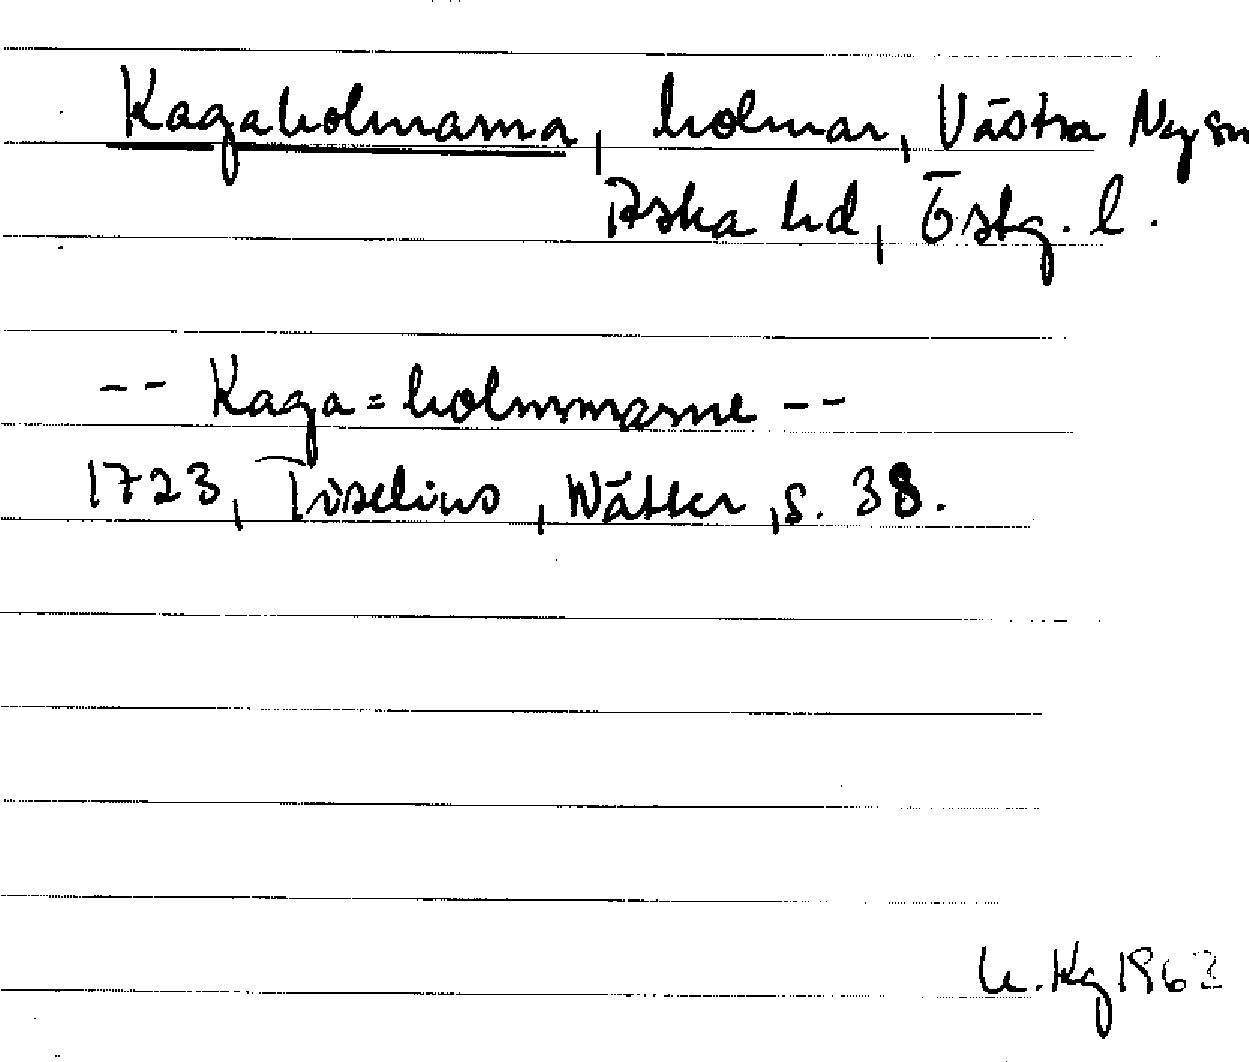 Kagaholmarna, holmar, Västra Ny sn
Aska hd, Östg. l.
-- Kaga=holmmarne --
1723, Tiselius, Wätter, s. 38.
Kg 1962